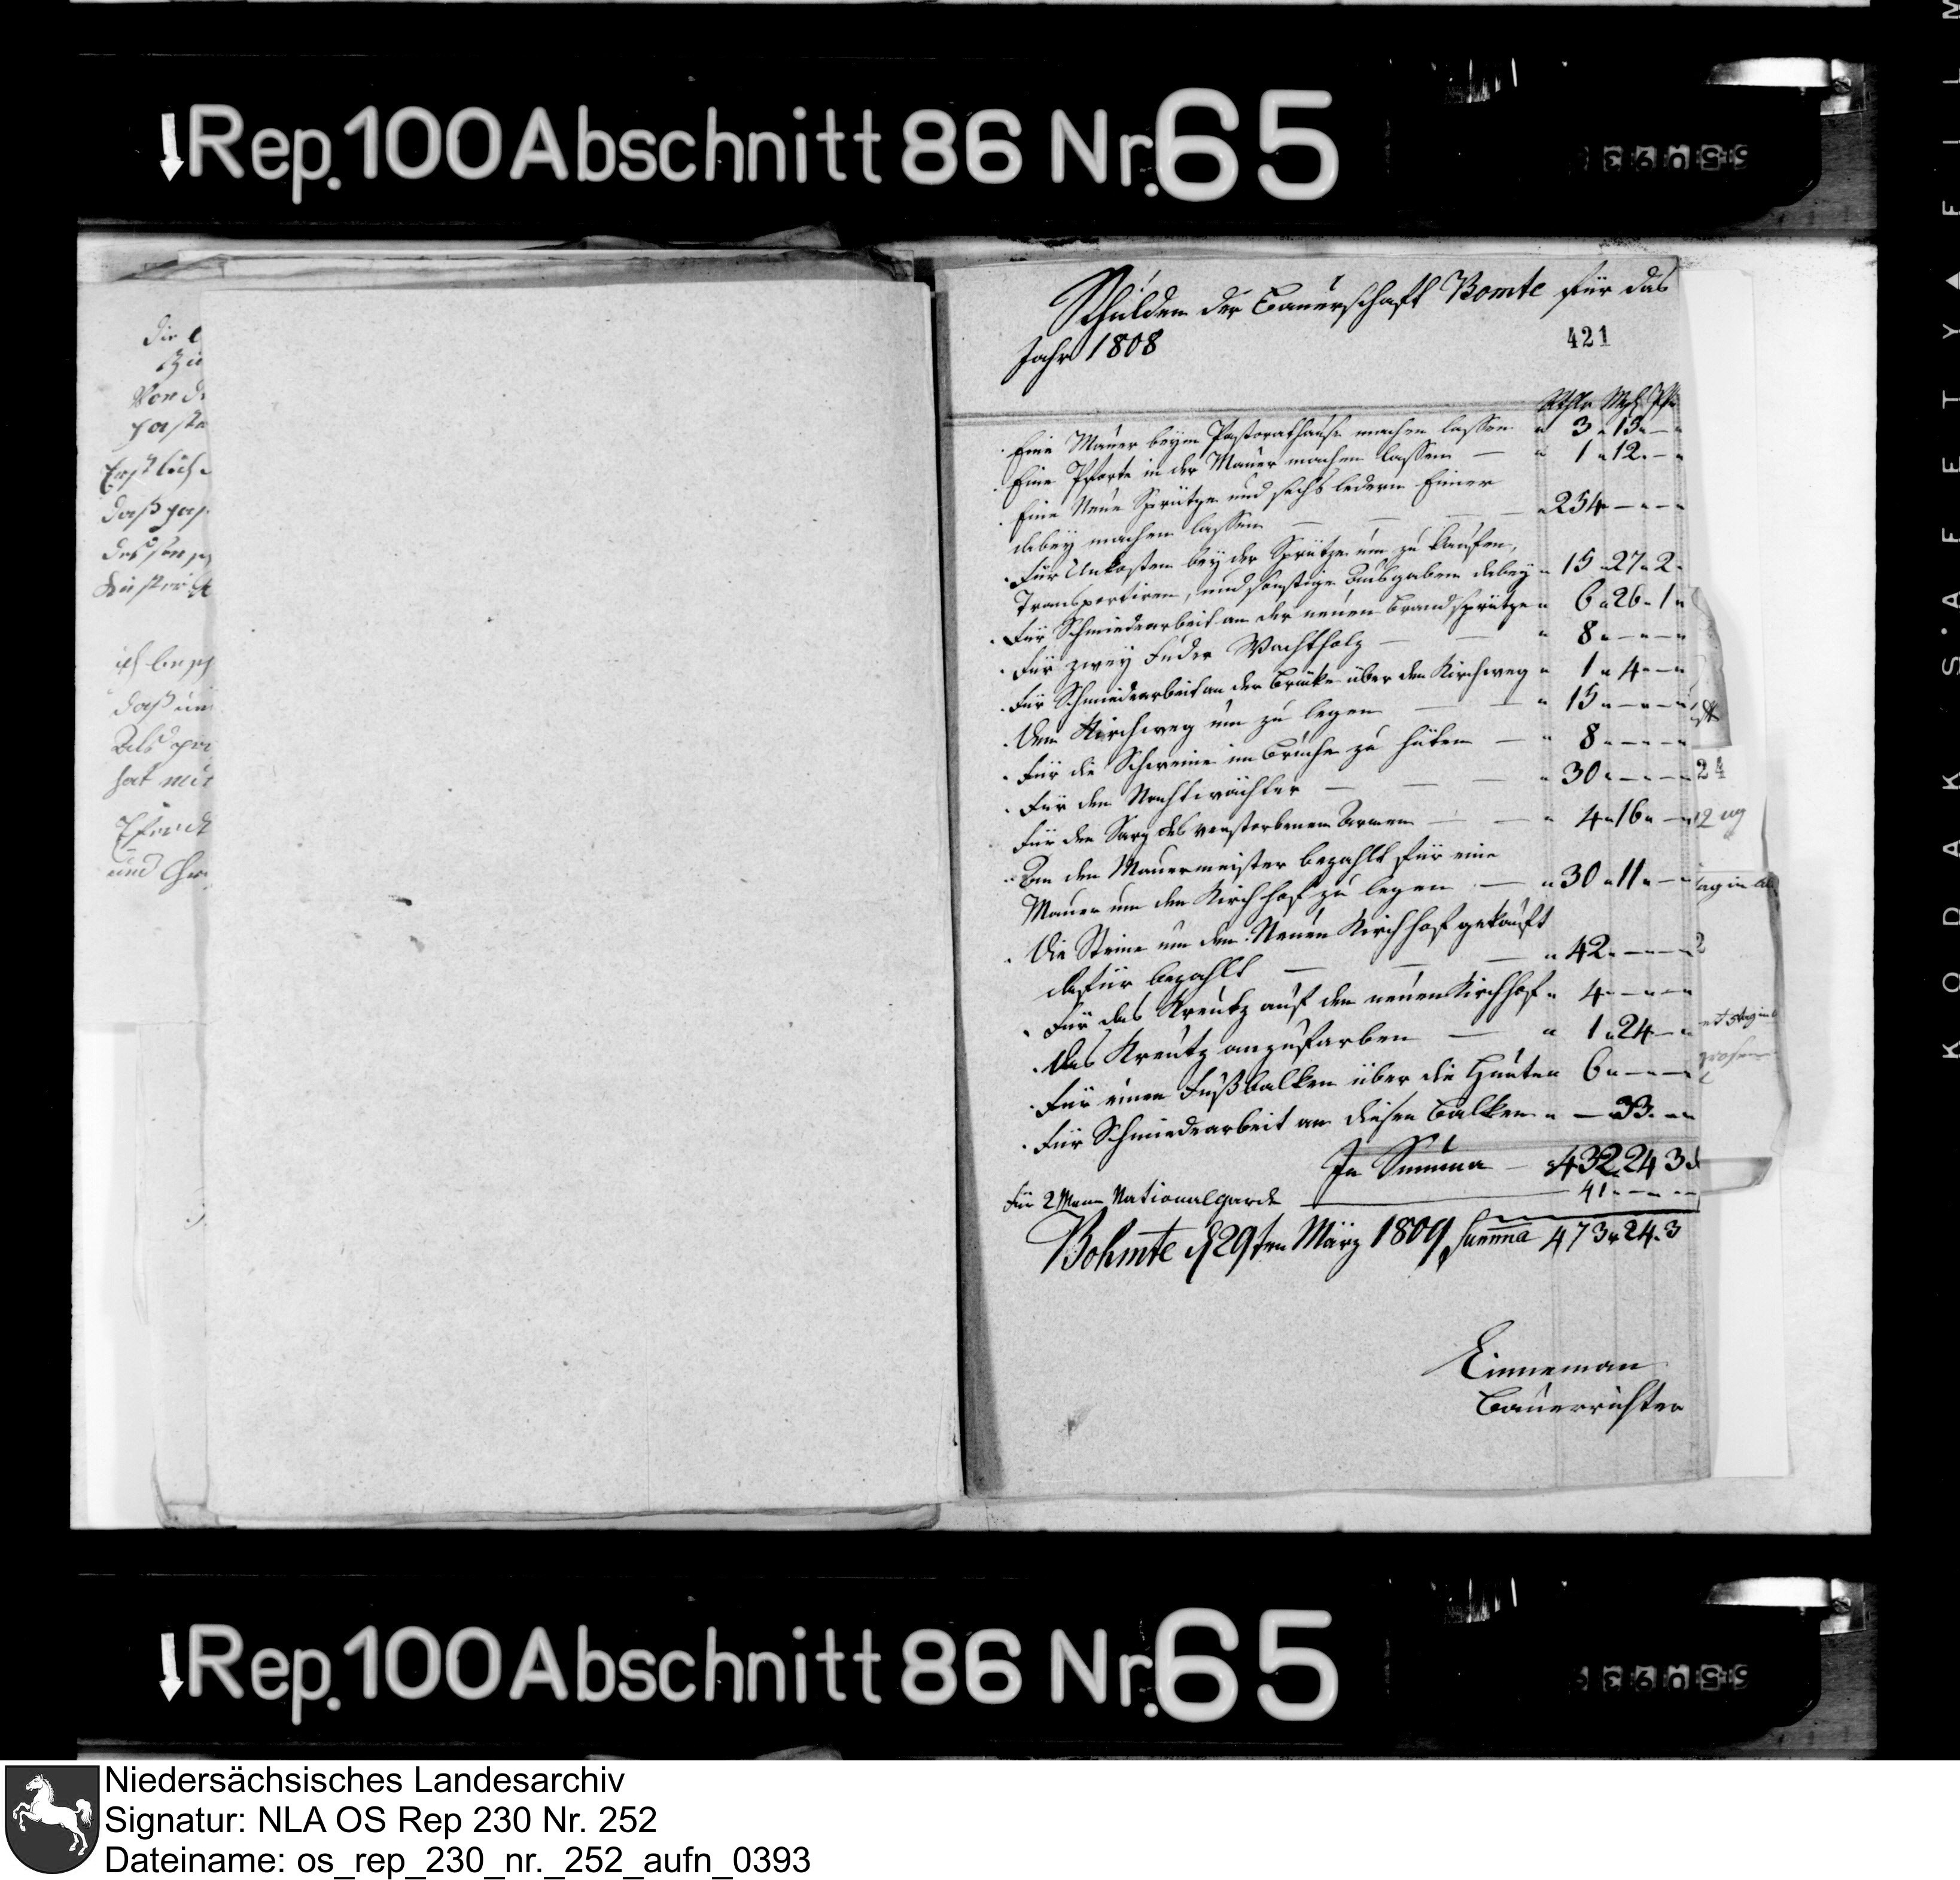 Rep. 100 Abschnitt 86 Nr. 65
Schulden der Bauerschaft Bomte für das
Jahr 1808
421
Rthlr Mgl Pf
Eine Mauer beym Pastorathause machen lassen " 3 " 13 " — "
Eine Pforte in der Mauer machen lassen — " 1 " 12 " — "
Eine Neue Sprütze und sechs ledern Eimer
dabey machen lassen — — — " 254 " — " — "
Für Unkosten bey der Sprütze um zu kaufen,
Transportiren, und sonstige Ausgaben dabey " 15 " 27 " 2 "
Für Schmiedearbeit an der neuen Brandsprütze " 6 " 26 " 1 "
Für zwey Fuder Wachtholz — — " 8 " — " — "
Für Schmiedearbeit an der Brücke über den Kirchweg " 1 " 4 " — "
Den Kirchweg um zu legen — — " 15 " — " — "
Für die Schweine im Bruche zu hüten — " 8 " — " — "
Für den Nachtwächter — — — " 30 " — " — "
Für den Sarg des verstorbenen Armen — — " 4 " 16 " — "
An den Mauermeister bezahlt für eine
Mauer um den Kirchhof zu legen — " 30 " 11 " — "
Die Steine um den Neuen Kirchhof gekauft
dafür bezahlt — — — " 42 " — " — "
Für das Kreutz auf den neuen Kirchhof " 4 " — " — "
Das Kreutz anzufarben — " 1 " 24 " — "
Für einen Fußbalken über die Hunte " 6 " — " — "
Für Schmiedearbeit an diesen Balken " — " 33 " — "
In Summa — 432 24 3
Für 2 Mann Nationalgarde — 41 " — " — "
Bohmte d 29ten März 1809 Summa 473 " 24 " 3
Linneman
Bauerrichter
Rep. 100 Abschnitt 86 Nr. 65
KODAK SAFETY FILM
Niedersächsisches Landesarchiv
Signatur: NLA OS Rep 230 Nr. 252
Dateiname: os_rep_230_nr._252_aufn_0393